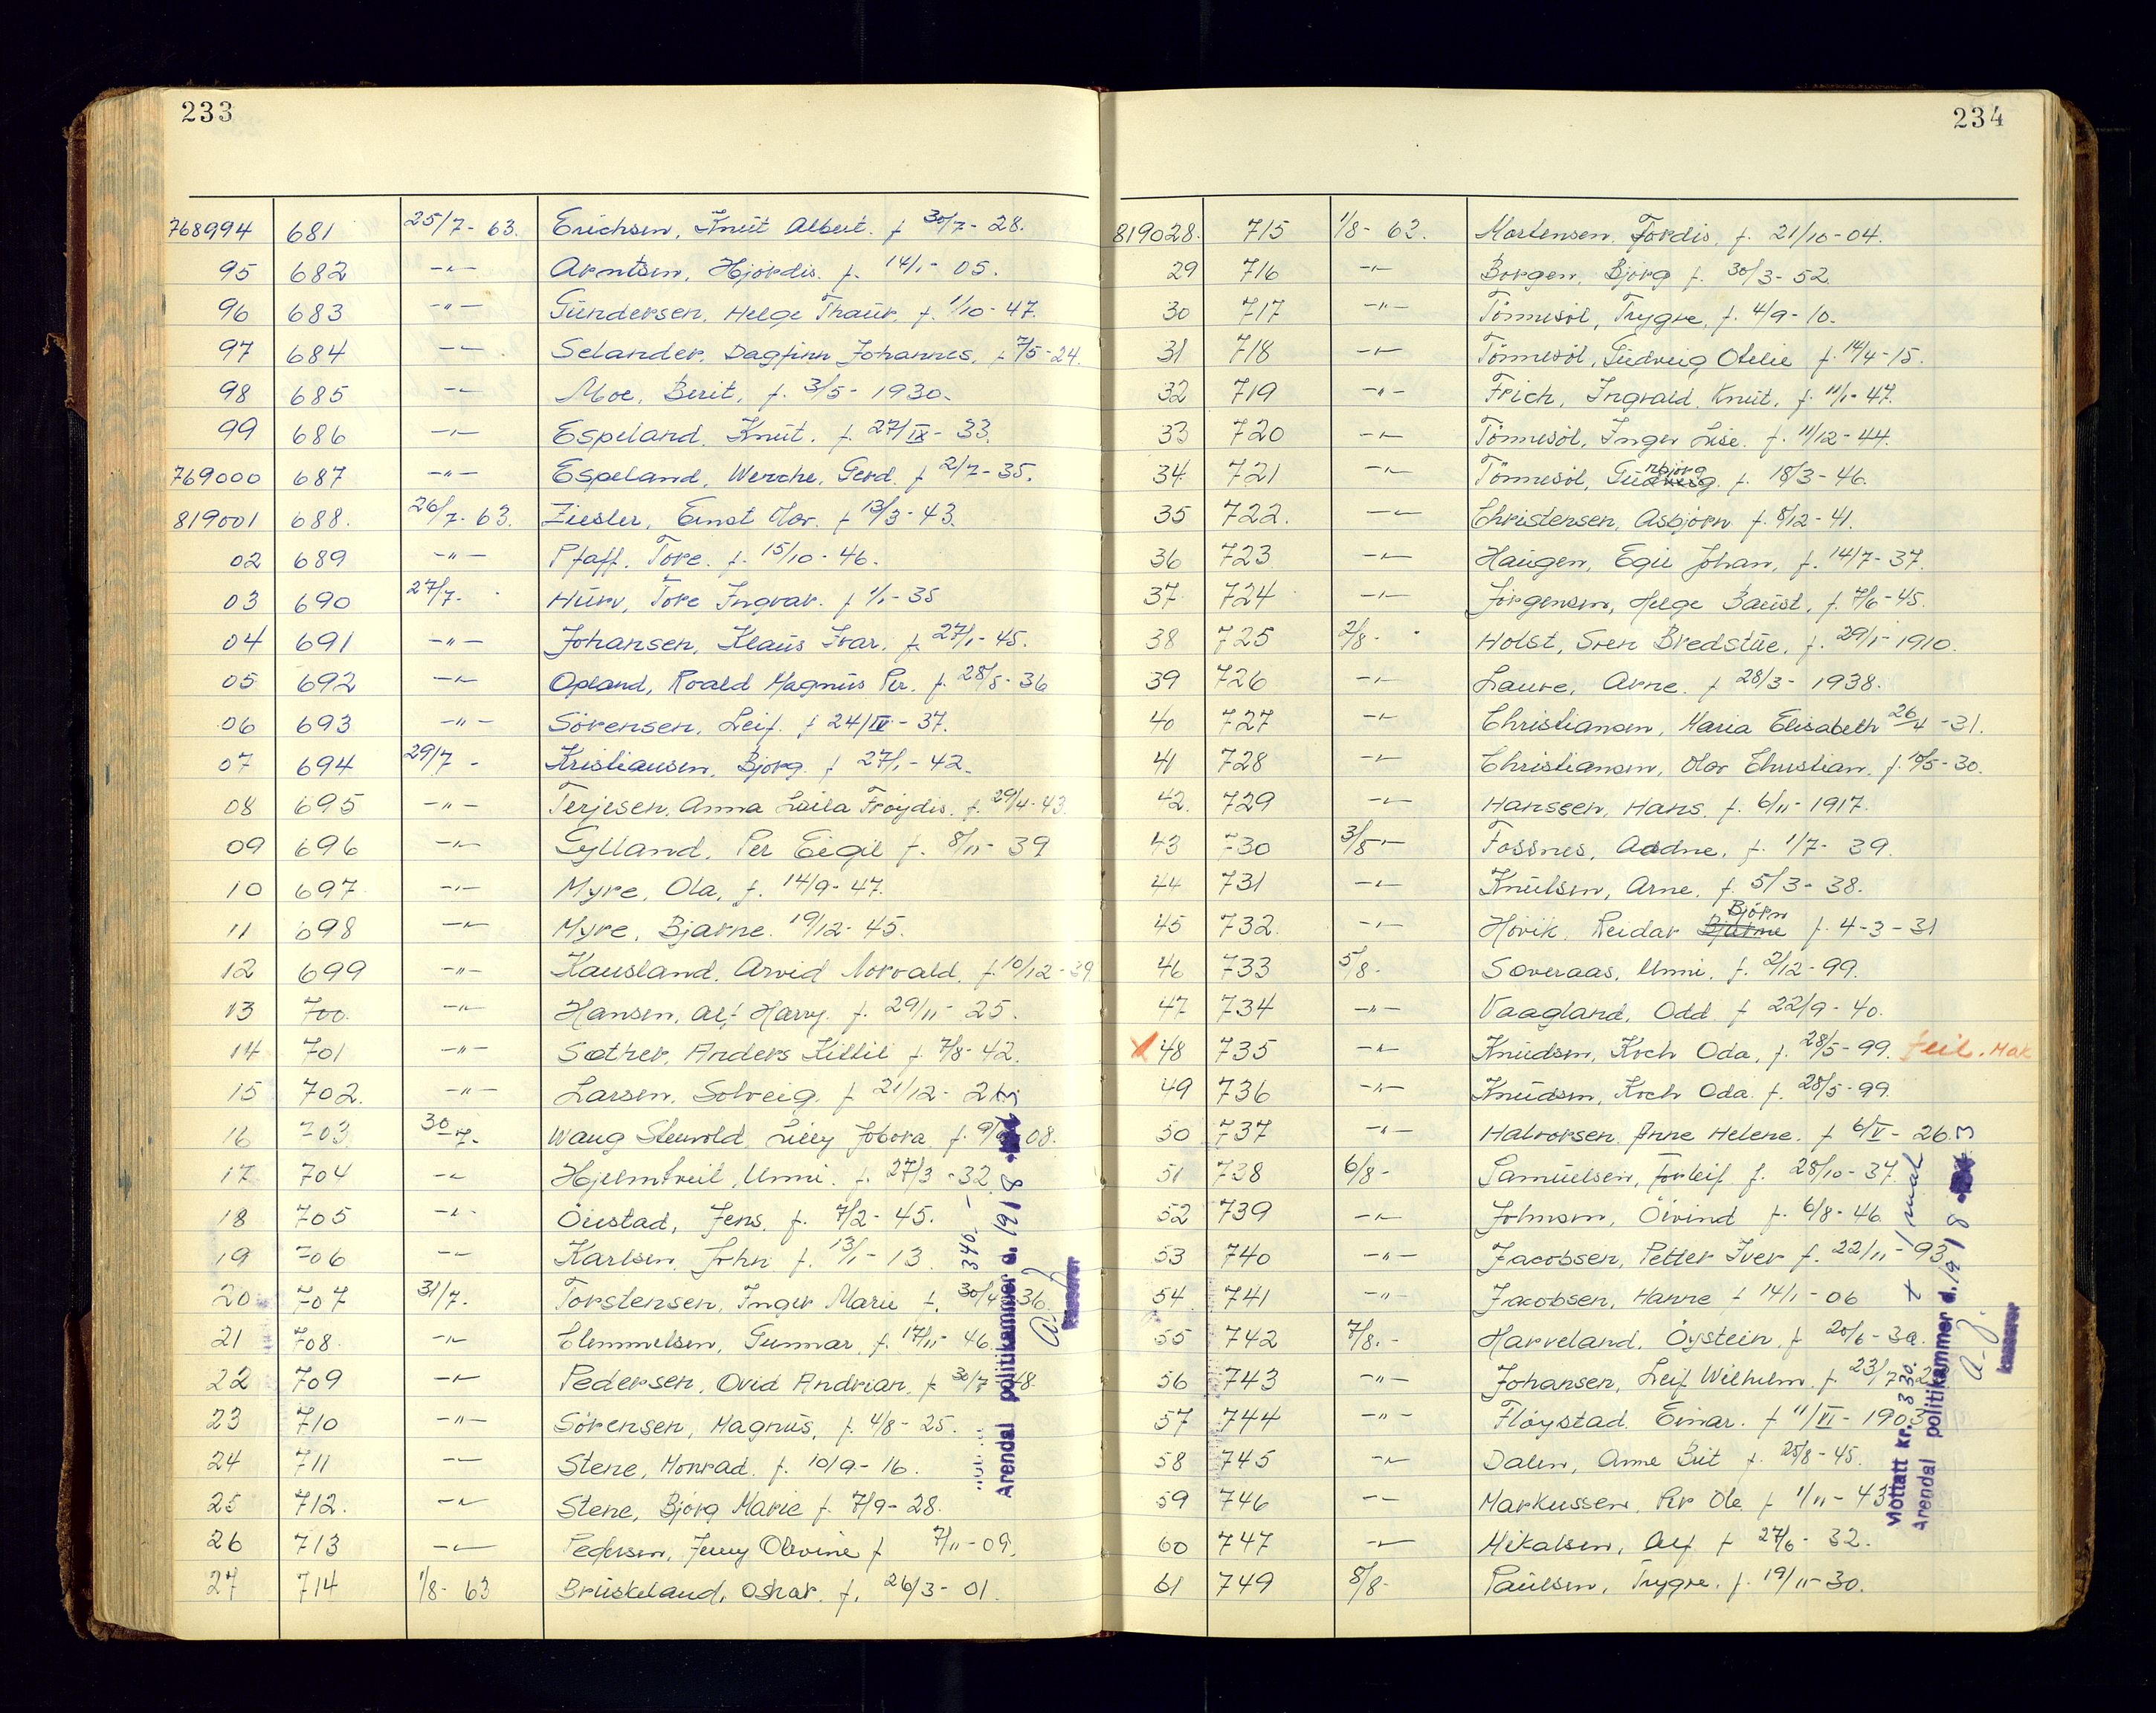 233
768994 681 25/7- 63. Erichsen, Knut Albert. f 30/7- 28.
95 682 -"- Arntsen, Hjördis. f. 14/1- 05.
96 683 -"- Gundersen, Helge Thaur, f. 1/10- 47.
97 684 -"- Selander, Dagfinn Johannes, f 7/5-24.
98 685 -"- Moe, Berit, f. 3/5- 1930.
99 686 -"- Espeland, Knut. f. 27/IX- 33.
769000 687 -"- Espeland, Werche, Gerd. f 2/7-35.
819001 688. 26/7- 63. Ziesler, Ernst Olav. f 13/3-43.
02 689 -"- Pfaff, Tore. f. 15/10- 46.
03 690 27/7- Tore Ingvar. f 1/1-35
04 691 -"- Johansen, Klaus Ivar. f. 27/1-45.
05 692 -"- Opland, Roald Magnus Per. f. 28/8-36
06 693 -"- Sörensen, Leif. f 24/IV-37.
07 694 29/7 - Kristiansen, Björg. f 27/1-42.
08 695 -"- Terjesen, Anna Laila Fröydis. f. 29/4-43.
09 696 -"- Gylland, Per Eigil f. 8/11-39
10 697 -"- Myre, Ola, f. 14/9-47.
11 698 -"- Myre, Bjarne. 19/12-45.
12 699 -"- Kausland, Arvid Norvald. f. 10/12-39
13 700. -"- Hansen, Alf Harry. f. 29/11- 25.
14 701 -"- Sæther, Anders Kittil f. 7/8-42.
15 702. -"- Larsen, Solveig. f 21/12-
16 703 30/7- Waug Stenvold, Lilly f. 08.
17 704 -"- Hjelmtveit, Unni. f. 27/3 -32.
18 705 -"- Öustad, Jens, f. 7/2-45.
19 706 -"- Karlsen, John f. 13/1-13.
20 707 31/7. Torstensen, Inger Marie f. 30/4 36.
21 708. -"- Clemmetsen, Gunnar, f. 17/11- 46.
22 709 -"- Pedersen, Ovid Andrian, f 30/7- 48.
23 710 -"- Sörensen, Magnus, f. 4/8-25.
24 711 -"- Stene, Monrad. f. 10/9-16.
25 712. -"- Stene, Björg Marie f. 7/9-28.
26 713 -"- Pedersen, Jenny Olevine f 7/11-09.
27 714 1/8- 63 Bruskeland, Oskar. f. 26/3- 01.
340.-
Arendal politikammer d. 19/8
234
819028. 715 1/8- 63. Mortensen, Tordis, f. 21/10-04.
29 716 -"- Borgen, Björg f. 30/3-52.
30 717 -"- Tönnesöl, Trygve, f. 4/9-10.
31 718 -"- Tönnesöl, Gudveig Otelie f. 14/4-15.
32 719 -"- Frich, Ingvald Knut, f. 11/1-47.
33 720 -"- Tönnesöl, Inger Lise. f. 11/12-44.
34 721 -"- Tönnesöl, Gunbjörg f. 18/3-46.
35 722. -"- Christensen, Asbjörn f. 8/12-41.
36 723 -"- Haugen, Egil Johan, f. 14/7-37.
37 724 -"- Jörgensen, Helge Baust, f. 7/6-45.
38 725 2/8- Holst, Sven Bredstue, f. 29/1-1910.
39 726 -"- Laure, Arne. f 28/3- 1938.
40 727 -"- Christiansen, Maria Elisabeth 26/4 -31.
41 728 -"- Christiansen, Olav Christian. f. 10/5-30.
42. 729 -"- Hanssen, Hans. f. 6/11-1917.
43 730 3/8- Fossnes, Addne, f. 1/7- 39.
44 731 -"- Knutsen, Arne. f. 5/3-38.
45 732. -"- Hövik, Reidar Bjarne Björn f. 4-3-31
46 733 5/8- Soveraas, Unni. f. 2/12-99.
47 734 -"- Vaagland, Odd. f 22/9-40.
X 48 735 -"- Knudsen, Koch Oda, f. 28/5-99. feil. Mak
49 736 -"- Knudsen, Koch Oda. f. 28/5-99.
50 737 -"- Halvorsen, Anne Helene. f 6/V- 26.
51 738 6/8- Samuelsen, Torleif. f. 28/10-37
52 739 -"- Johnsen, Öivind f. 6/8-46.
53 740 -"- Jacobsen, Petter Iver f. 22/11-93
54 741 -"- Jacobsen, Hanne f 14/1-06
55 742 7/8.- Harveland, Öystein, f 20/6-30.
56 743 -"- Johansen, Leif Wilhelm. f. 23/7
57 744 -"- Flöystad, Einar. f 11/VI- 1903
58 745 -"- Dalen, Anne Brit f. 25/8-45.
59 746 -"- Markussen, Per Ole f 1/11-43
60 747 -"- Mikalsen, Alf f 27/6- 32.
61 749 8/8- Paulsen, Trygve. f. 19/11-30.
Mottatt kr. 330. + 1 mak
Arendal politikammer d. 19/8